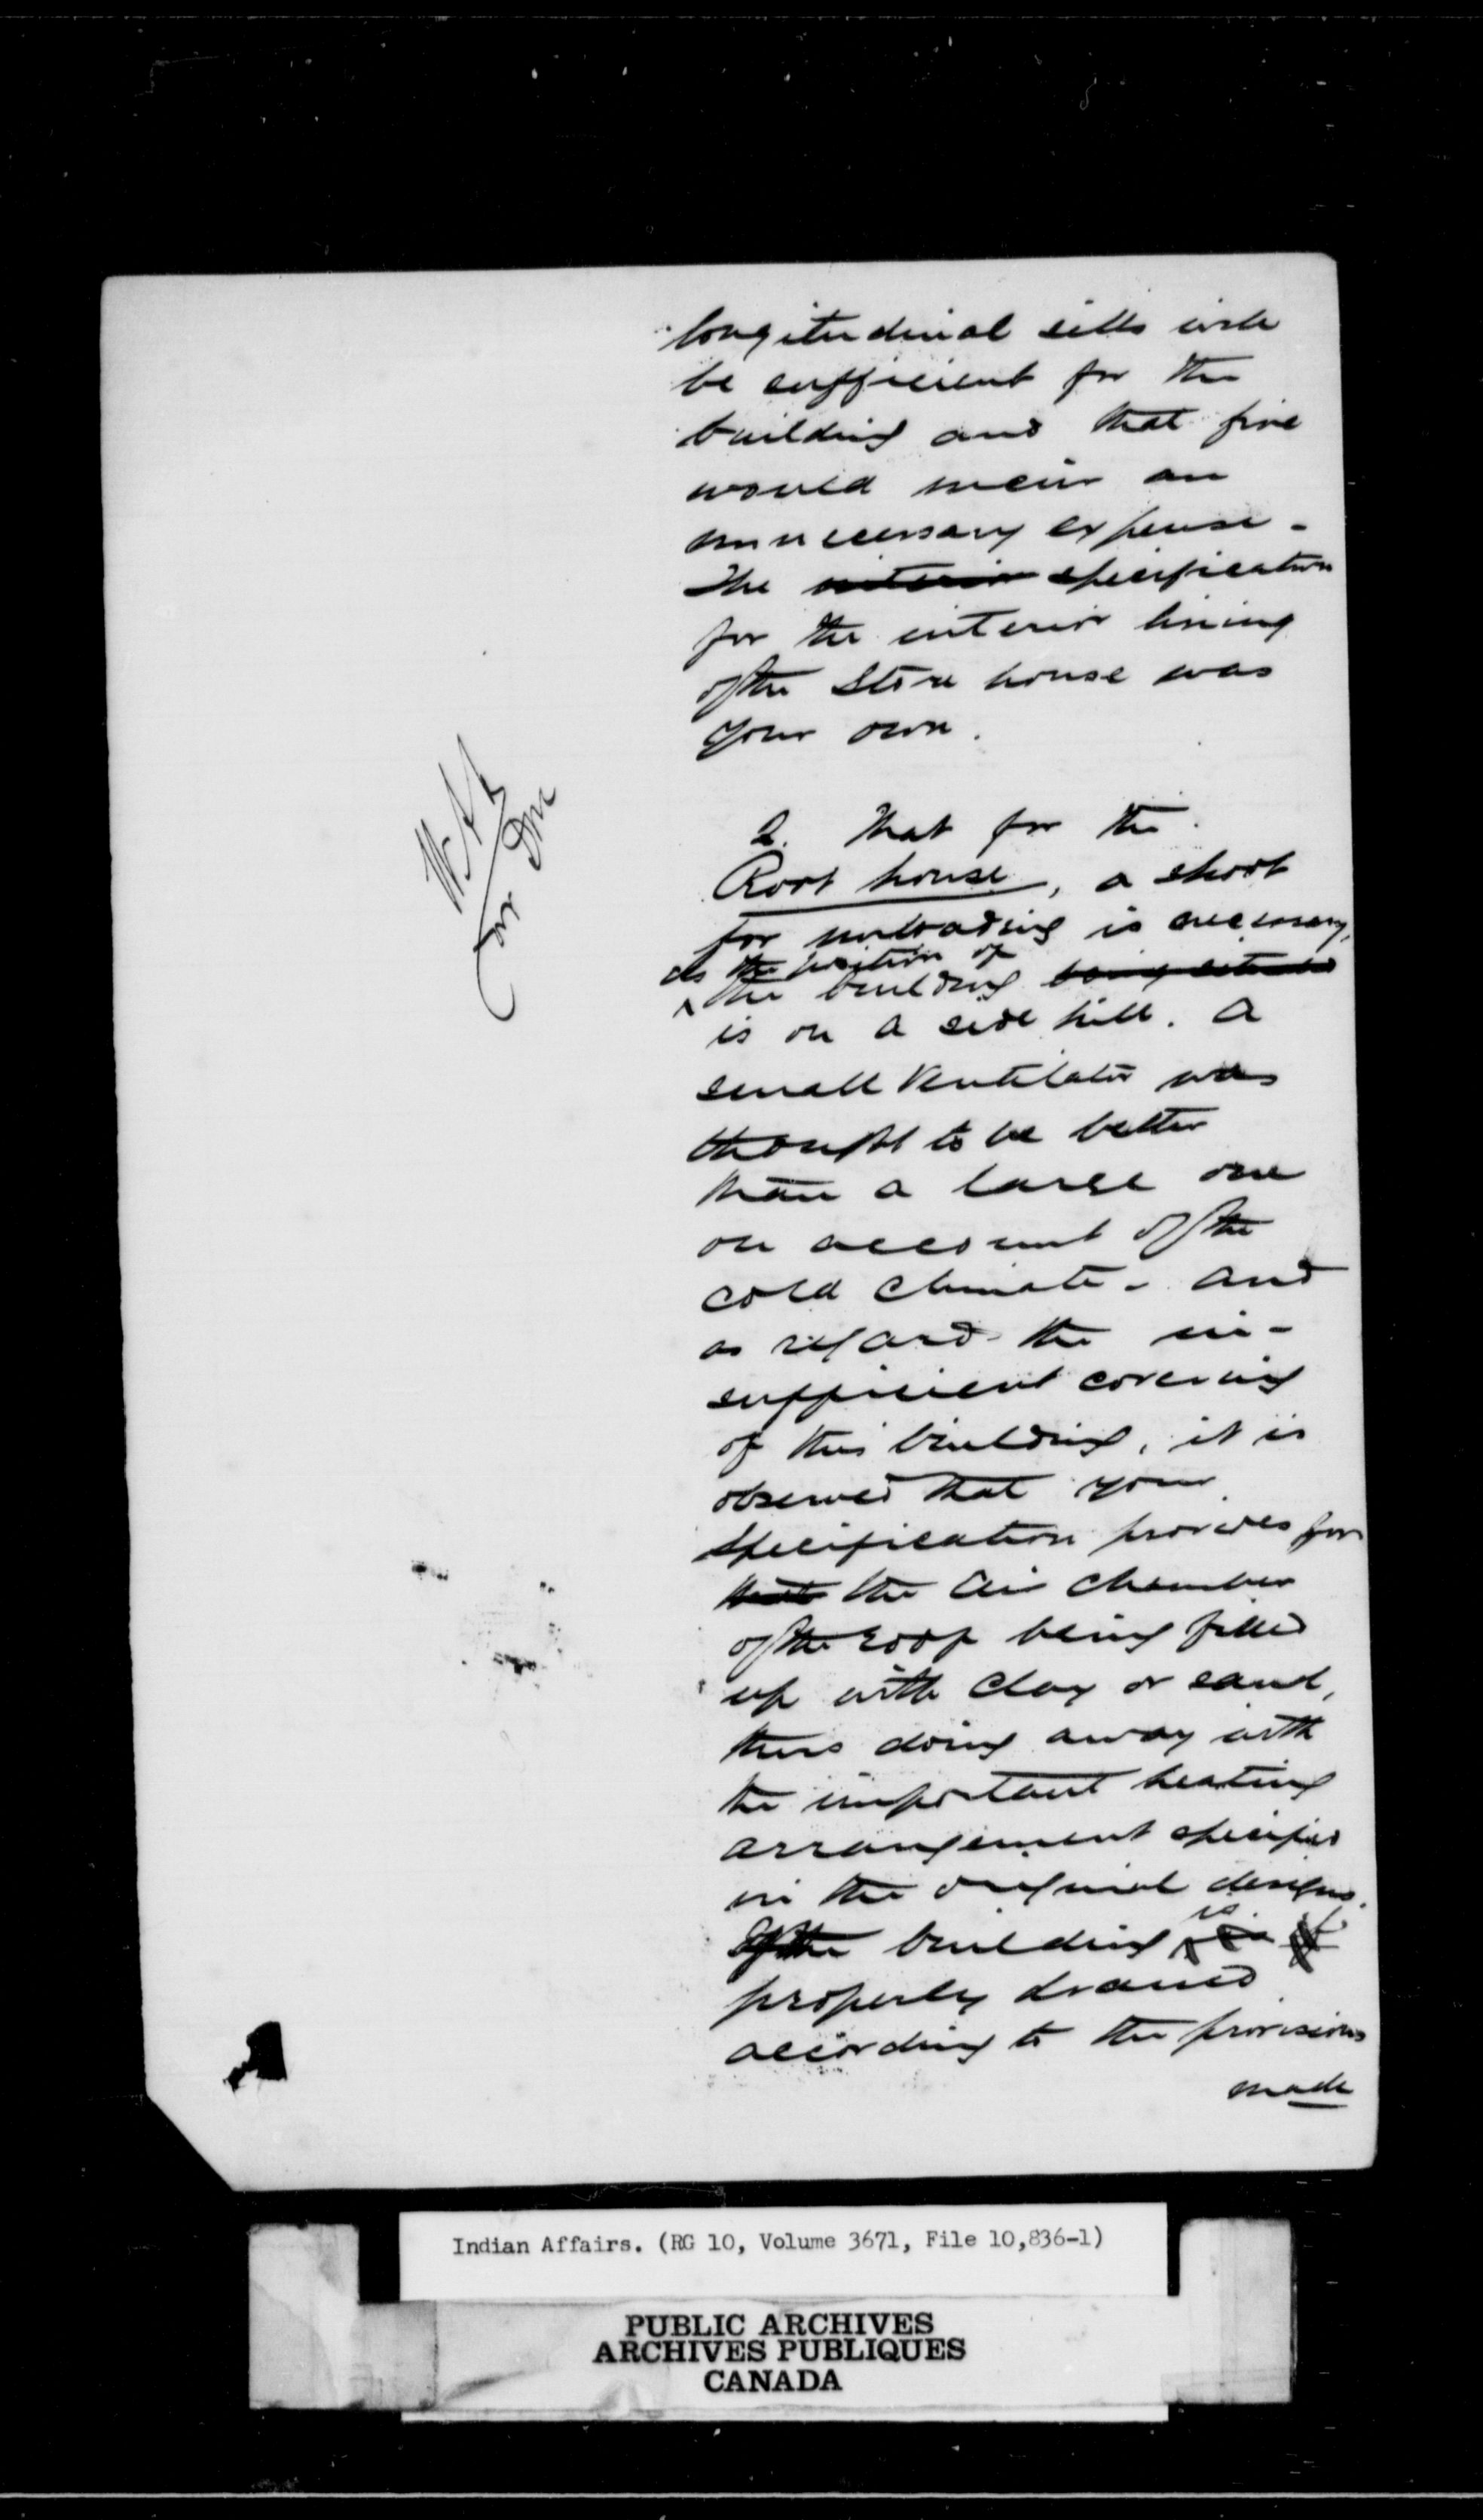 longitudinal sills will
be sufficient for the
building and that five
would incur an
unnecessary expense -
The interior specification
for the interior lining
of the Store house was
your own.
2. That for the
Root house, a shoot
for unloading is necessary,
as the position of
the building being situated
is on a side hill. A
small Ventilator was
thought to be better
than a large one
on account of the
cold climate - and
as regard the in-
sufficient covering
of this building, it is
observed that your
specification provides for
that the air chamber
of the roof being filled
up with clay or sand,
thus doing away with
the important heating
arrangement specified
in the original designs.
If the building is
properly drained
according to the provisions
made
for
Indian Affairs. (RG 10, Volume 3671, File 10,836-1)
PUBLIC ARCHIVES
ARCHIVES PUBLIQUES
CANADA